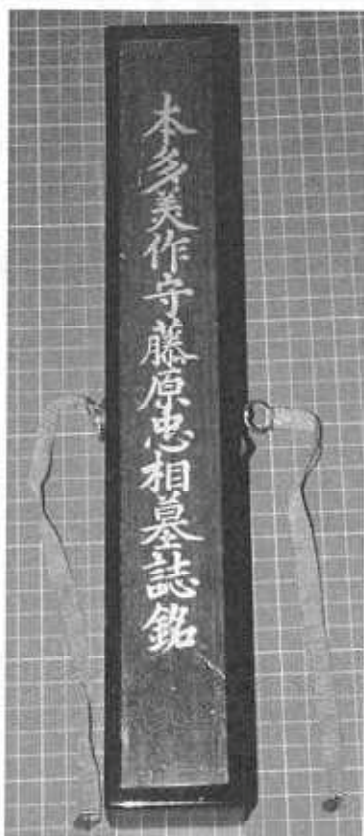 本多美作守藤原忠相墓誌銘